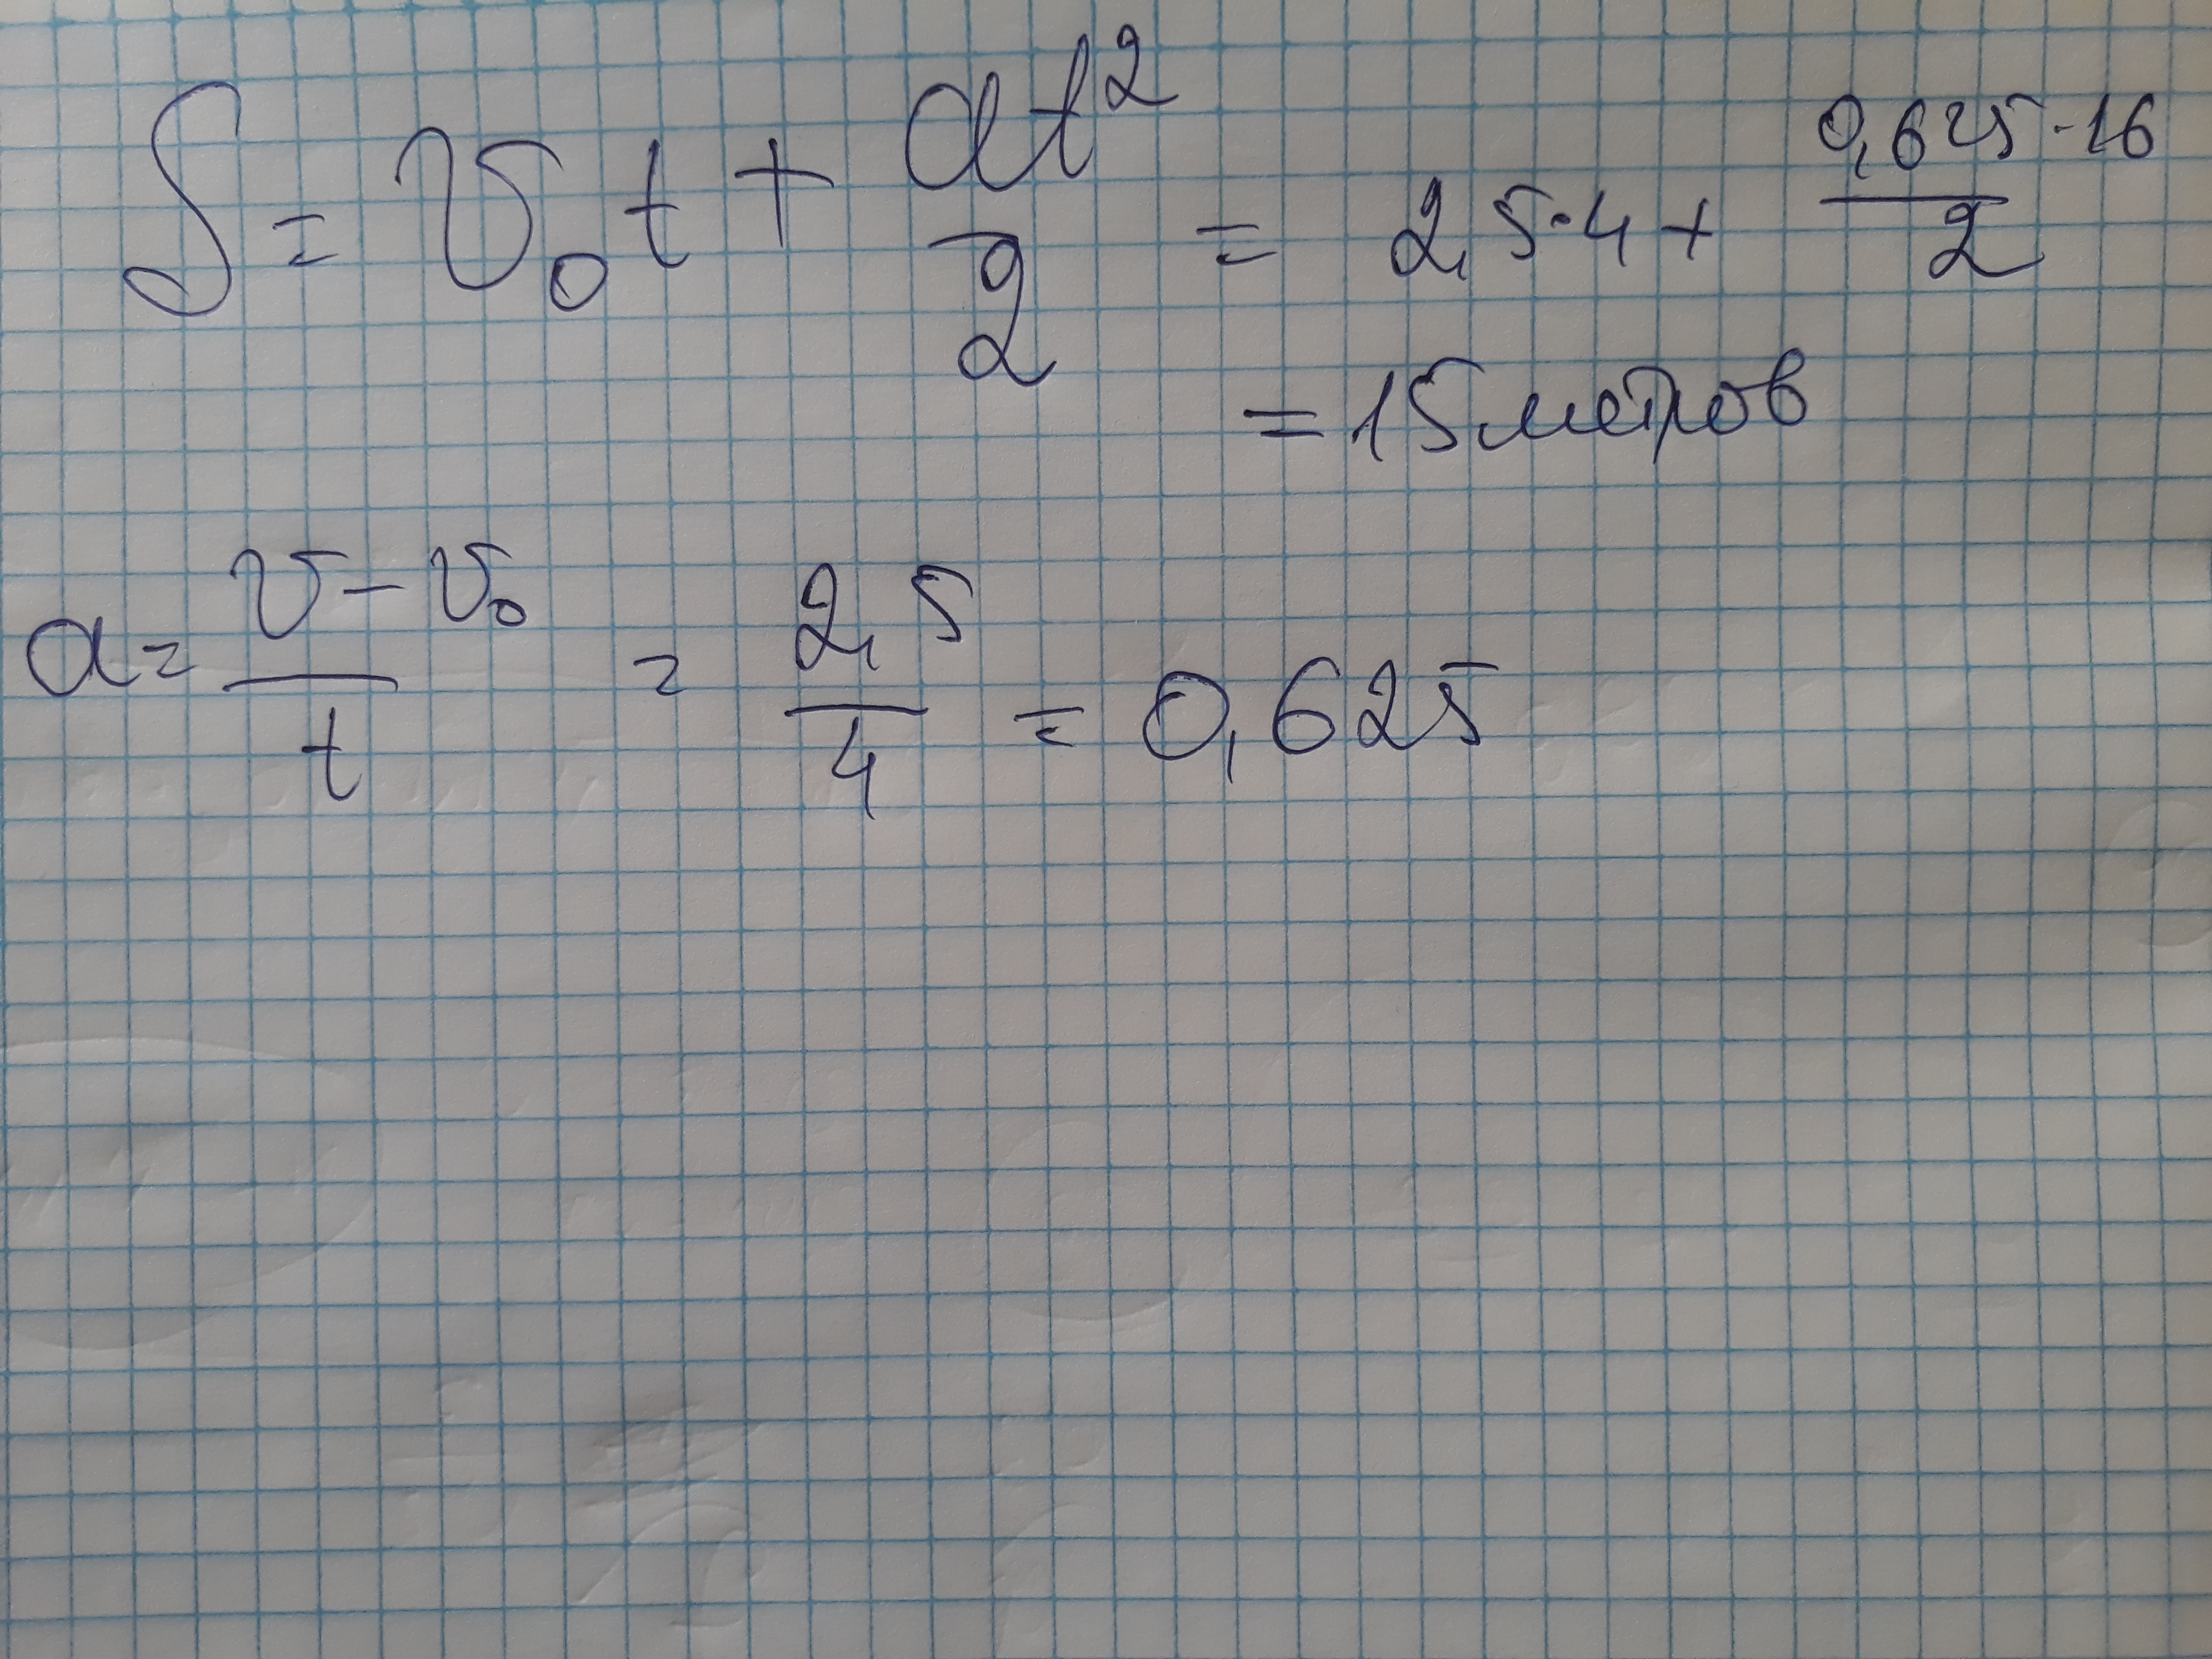 S = v₀t + at²/2 = 2,5·4 + 0,625·16/2
= 15 метров
a = v - v₀/t = 2,5/4 = 0,625